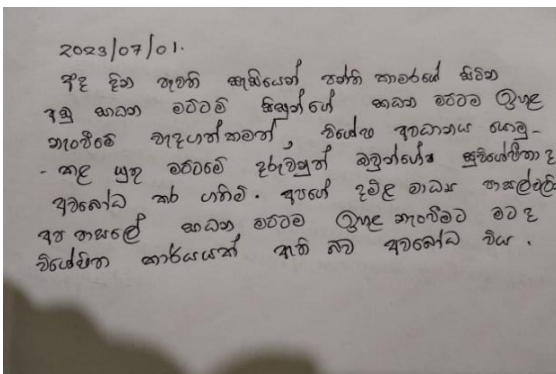 2023/07/01.
අද දින පැවති සැසියෙන් පන්ති කාමරයේ සිටින
අඩු සාධන මට්ටම් සිසුන්ගේ සාධන මට්ටම ඉහළ
නැංවීමේ වැදගත්කමත්, විශේෂ අවධානය යොමු-
-කළ යුතු මට්ටමේ දරුවනුත් ඔවුන්ගේ සුවිශේෂීතා ද
අවබෝධ කර ගතිමි. අපගේ දමිළ මාධ්‍ය පාසල්වල
අප පාසලේ සාධන මට්ටම ඉහළ නැංවීමට මට ද
විශේෂිත කාර්යයක් ඇති බව අවබෝධ විය.